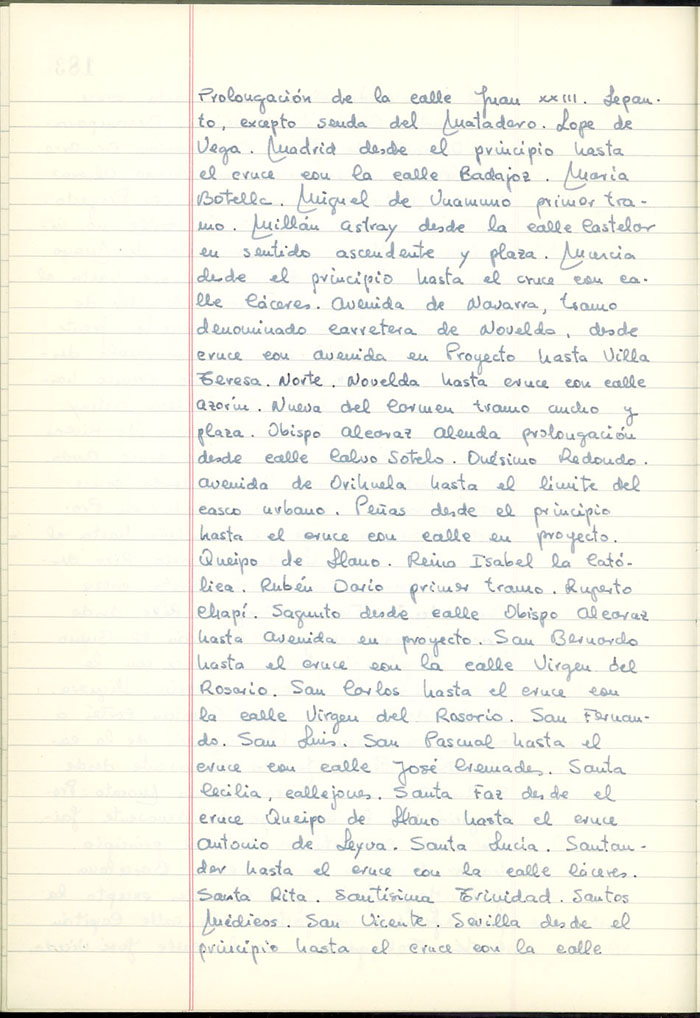 Prolongación de la calle Juan XXIII. Lepan-
to, excepto senda del Matadero. Lope de
Vega. Madrid desde el principio hasta
el cruce con la calle Badajoz. María
Botella. Miguel de Unamuno primer tra-
mo. Millán Astray desde la calle Castelar
en sentido ascendente y plaza. Murcia
desde el principio hasta el cruce con ca-
lle Cáceres. Avenida de Navarra, tramo
denominado carretera de Novelda, desde
cruce con avenida en Proyecto hasta Villa
Teresa. Norte. Novelda hasta cruce con calle
Azorín. Nueva del Carmen tramo ancho y
plaza. Obispo Alcaraz Alenda prolongación
desde calle Calvo Sotelo. Onésimo Redondo.
Avenida de Orihuela hasta el límite del
casco urbano. Peñas desde el principio
hasta el cruce con calle en proyecto.
Queipo de Llano. Reina Isabel la Cató-
lica. Rubén Darío primer tramo. Ruperto
Chapí. Sagunto desde calle Obispo Alcaraz
hasta Avenida en proyecto. San Bernardo
hasta el cruce con la calle Virgen del
Rosario. San Carlos hasta el cruce con
la calle Virgen del Rosario. San Fernan-
do. San Luis. San Pascual hasta el
cruce con calle José Cremades. Santa
Cecilia, callejones. Santa Faz desde el
cruce Queipo de Llano hasta el cruce
Antonio de Leyva. Santa Lucía. Santan-
der hasta el cruce con la calle Cáceres.
Santa Rita. Santísima Trinidad. Santos
Médicos. San Vicente. Sevilla desde el
principio hasta el cruce con la calle